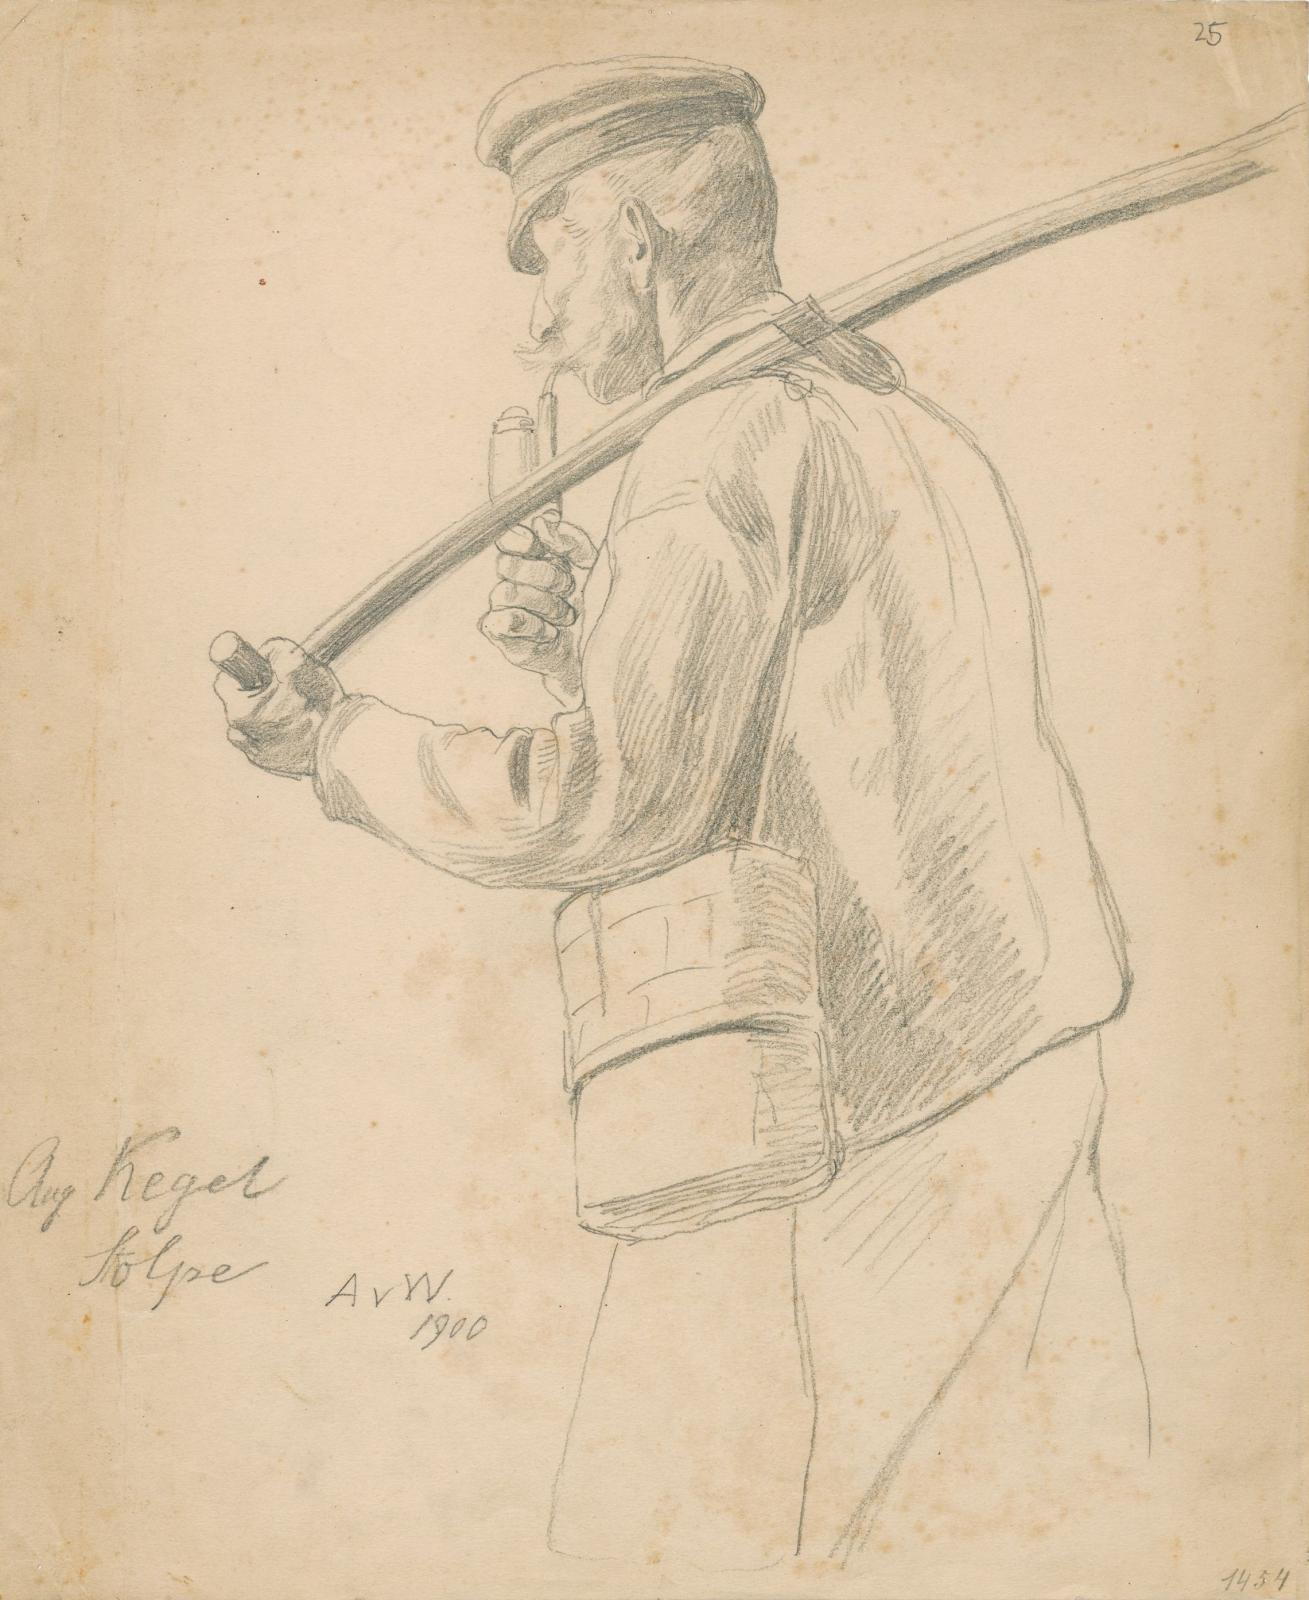 25
Aug Kegel
Stolpe
A v W.
1900
1454